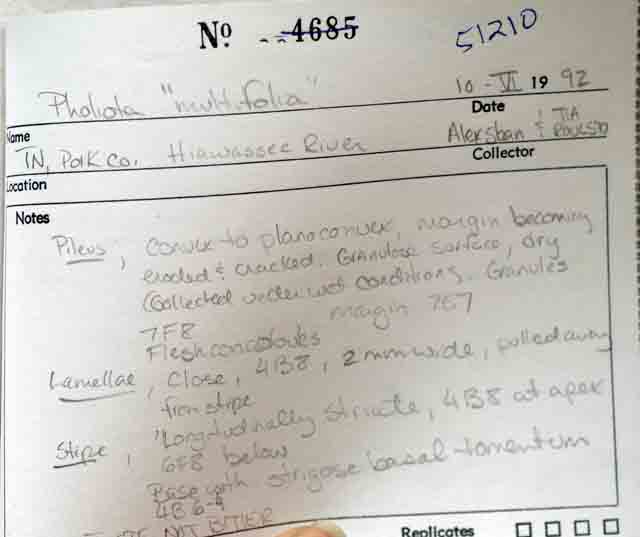 Nº 4685
51210
Pholiota "multifolia"
10-VI 1992
Name
Date
TN, Polk Co. Hiawassee River
& TIA
Location
Collector
Notes
Pileus, convex to planoconvex, margin becoming
eroded & cracked. Granulose surface, dry
(Collected under wet conditions. Granules
7F8 margin 7E7
Flesh concolorous
Lamellae, Close, 4B8, 2mm wide, pulled away
from stipe
Stipe, Longitudinally striate, 4B8 at apex
6F8 below
Base with strigose basal tomentum
4B6-4
NOT BITTER
Replicates